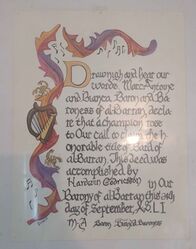 Draw nigh and hear our
words. Marc Antoine
and Bianca, Baron and Ba
roness of al Barran, decla
re that a champion rose
to Our call to claim the h
onorable title of Bard of
al Barran. This deed was
accomplished by
in Our
Barony of al Barran this
day of September, A.S. LI
Baron Baroness